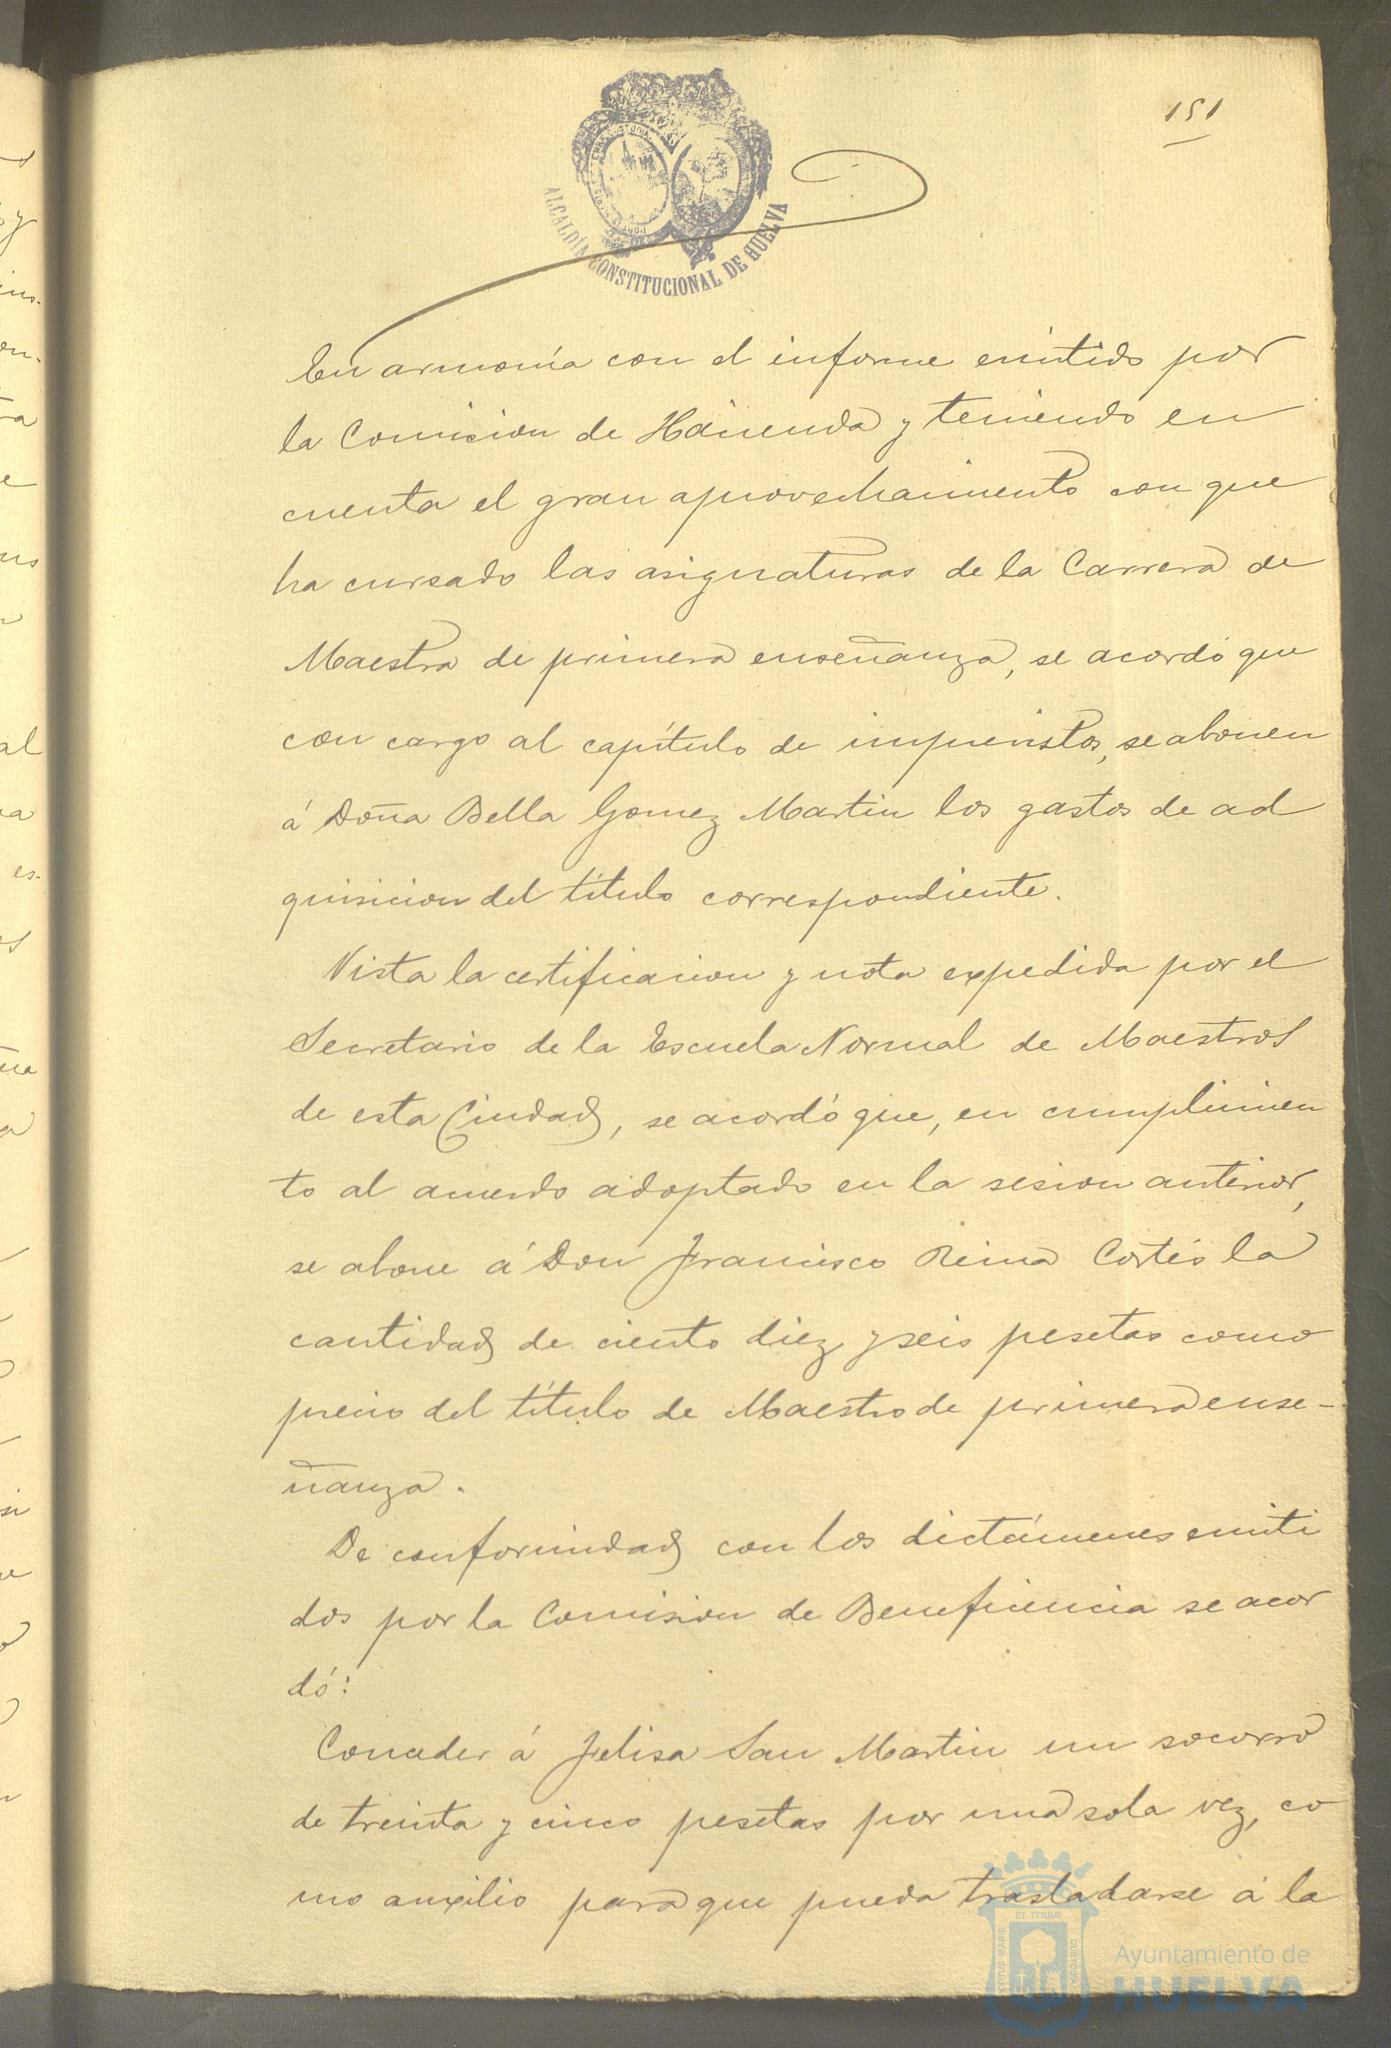 151
ALCALDÍA CONSTITUCIONAL DE HUELVA
En armonía con el informe emitido por
la Comision de Hacienda y teniendo en
cuenta el gran aprovechamiento con que
ha cursado las asignaturas de la Carrera de
Maestra de primera enseñanza, se acordó que
con cargo al capítulo de imprevistos, se abonen
á Doña Bella Gomez Martin los gastos de ad
quisicion del título correspondiente.
Vista la certificacion y nota expedida por el
Secretario de la Escuela Normal de Maestros
de esta Ciudad, se acordó que, en cumplimien
to al acuerdo adoptado en la sesion anterior,
se abone á Don Francisco Reina Cortés la
cantidad de ciento diez y seis pesetas como
precio del título de Maestro de primera ense-
ñanza.
De conformidad con los dictámenes emiti
dos por la Comision de Beneficencia se acor
dó:
Conceder á Felisa San Martin un socorro
de treinta y cinco pesetas por una sola vez, co
mo auxilio para que pueda trasladarse á la
Ayuntamiento de
HUELVA